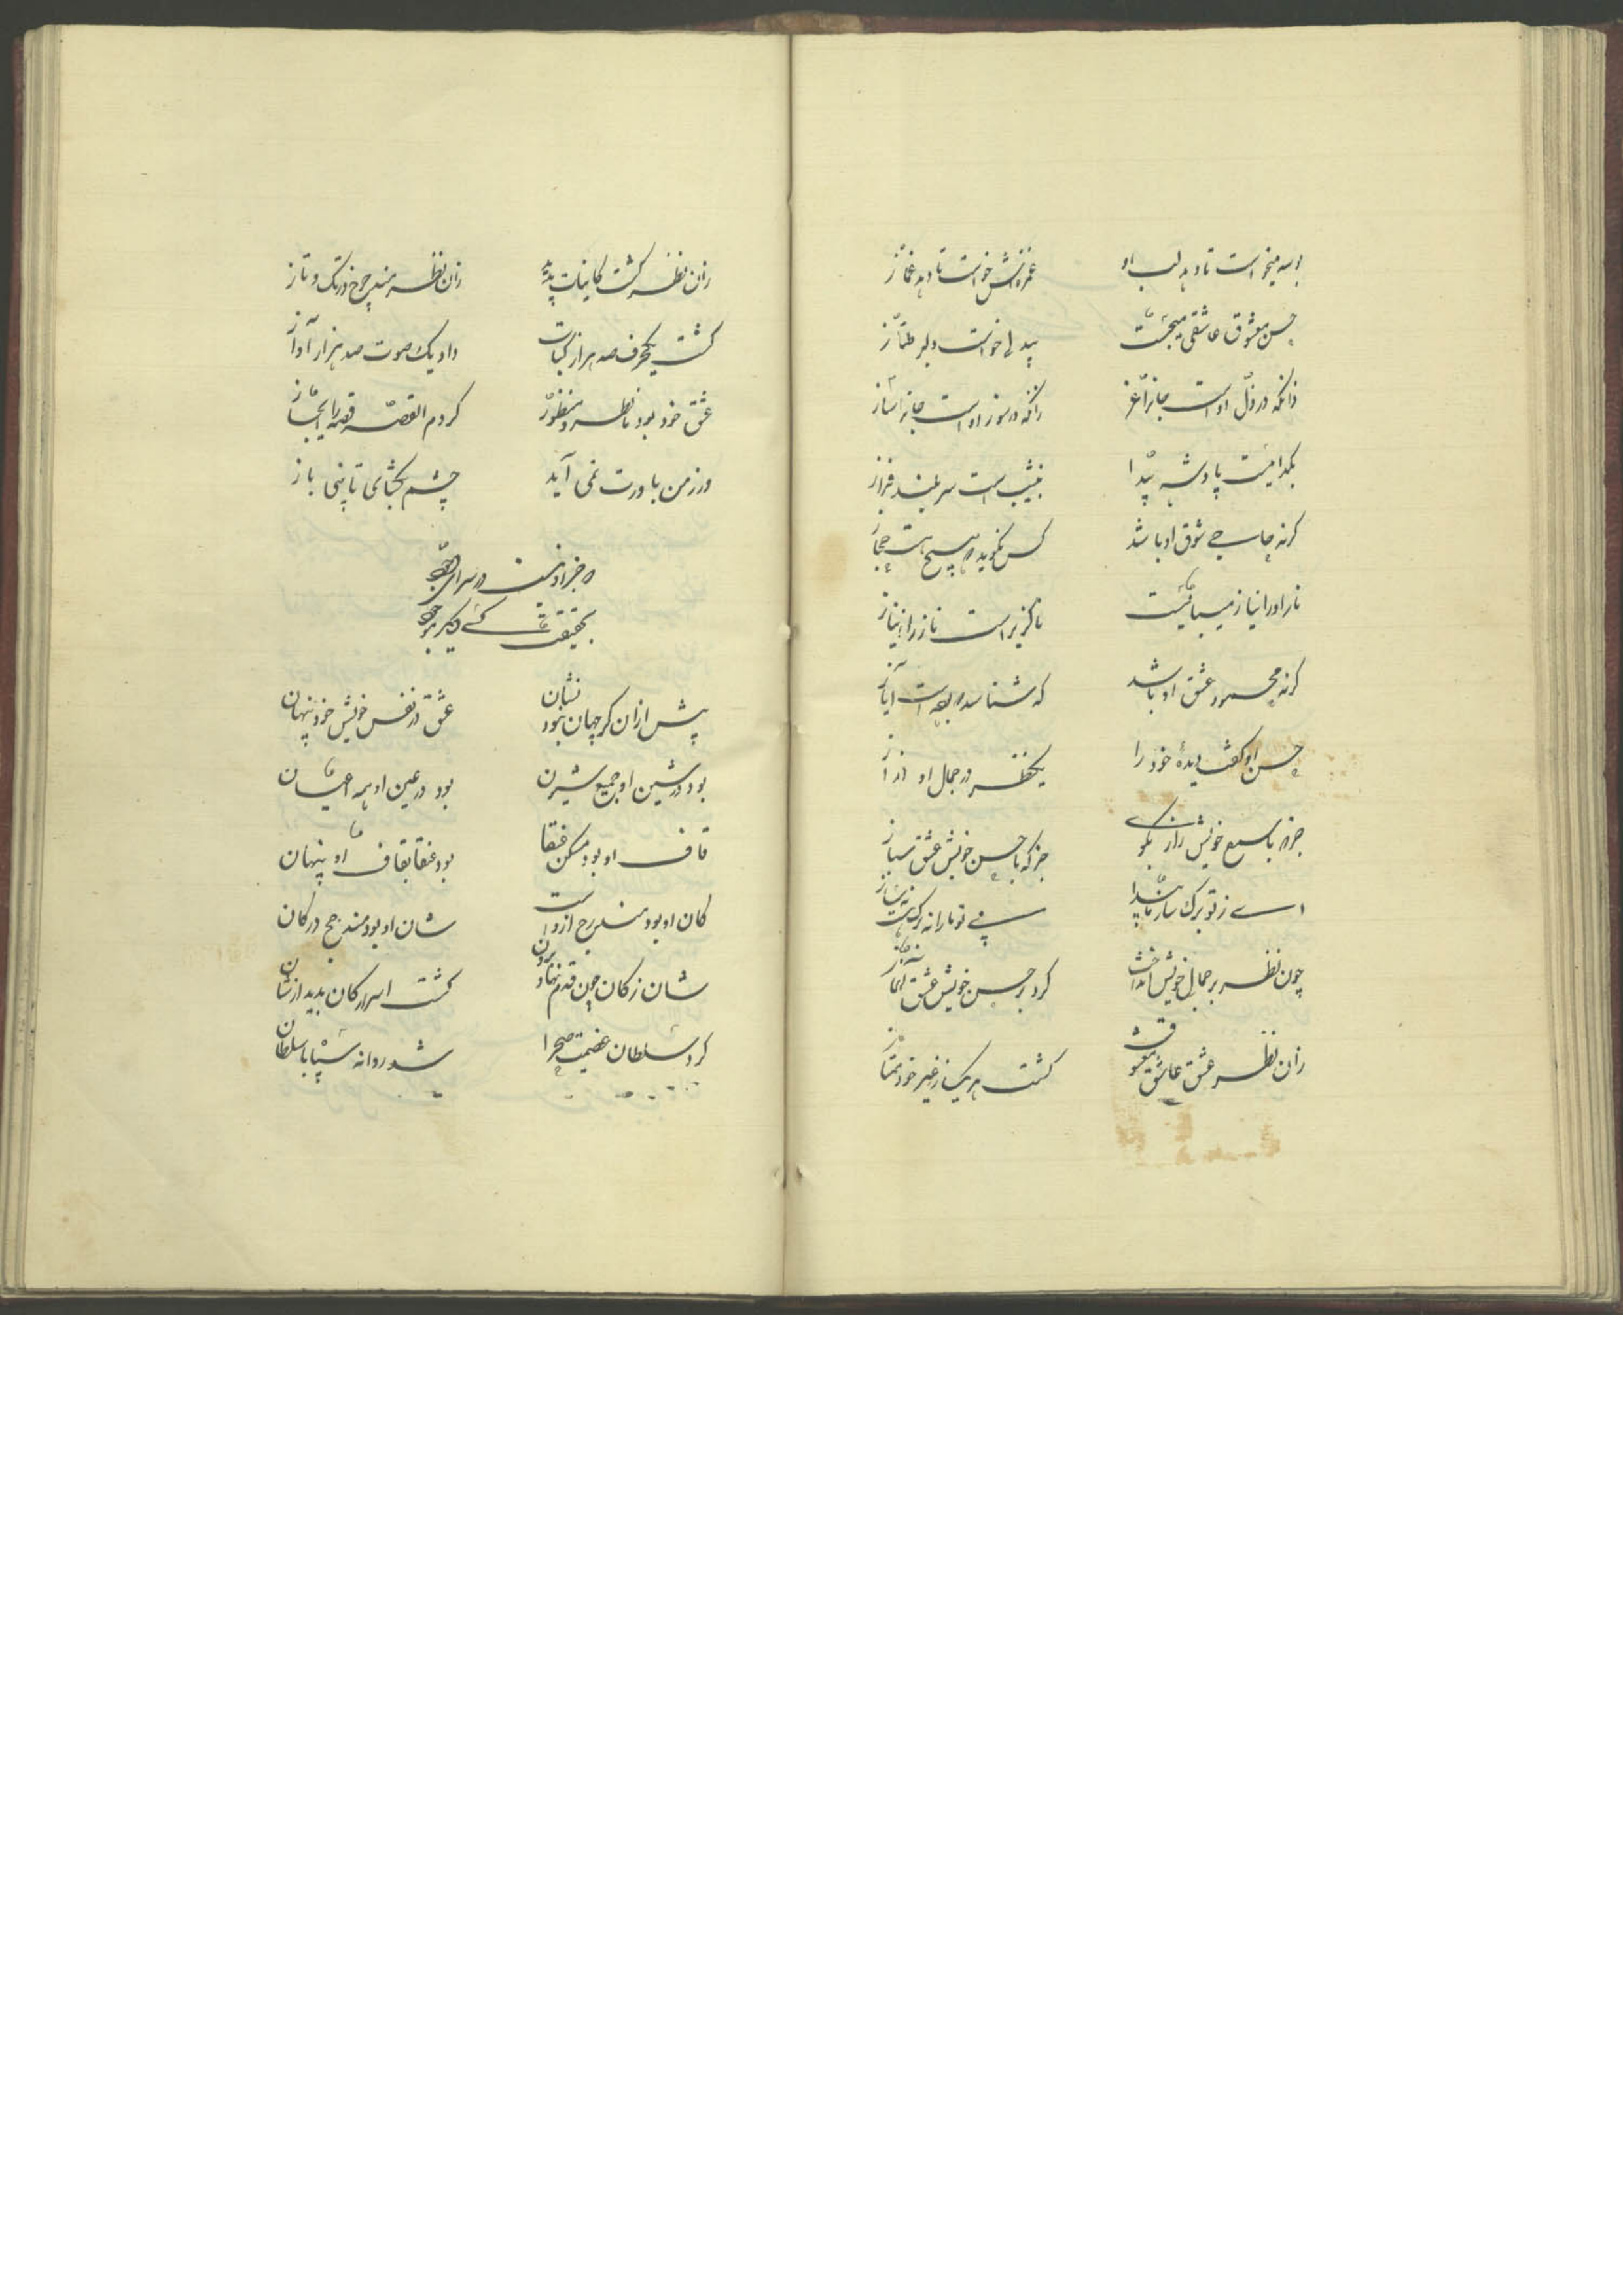 بوسه میخواست تا دهد لب او
غمزه‌اش خواست تا دهد غماز
حسن معشوق عاشقی میجست
بیدلی خواست دلبر طناز
زانکه در ذل اوست جانرا عز
زانکه در سوز اوست جانرا ساز
بگدائیست پادشه پیدا
بنشیب است سربلند فراز
گرنه حاجی شوق او باشد
کس نگوید که هیچ هست حجاز
ناز او را نیاز میبایست
ناگزیر است ناز را ز نیاز
گرنه محمود عشق او باشد
که شناسد که بوده است ایاز
حسن او گفت دیدهٔ خود را
یک نظر در جمال او انداز
جز که با سمع خویش راز مگوی
جز که با حسن خویش عشق مباز
ای ز تو برگ و ساز ما پیدا
بی تو ما را نه برگ هست و نه ساز
چون نظر بر جمال خویش انداخت
کرد بر حسن خویش عشق آغاز
زان نظر عشق و عاشق و معشوق
گشت هر یک ز غیر خود ممتاز
زان نظر گشت کاینات پدید
زان نظر شد چرخ در تک و تاز
گشت یک حرف صد هزار کتاب
داد یک صوت صد هزار آواز
عشق خود بود ناظر و منظور
کردم القصه قصه را ایجاز
ور ز من باورت نمی آید
چشم بگشای تا ببینی باز
که جز او نیست در سرای وجود
بحقیقت کسی دگر موجود
پیش از آن کز جهان نبود نشان
عشق در نفس خویش خود پنهان
بود در شین او جمیع شئون
بود در عین او همه اعیان
قاف او بود مسکن عنقا
بود عنقا بقاف او پنهان
کان او بود مندرج در او است
شان او بود مندرج در کان
شان ز کان چون قدم نهاد برون
گشت اسرار کان پدید از شان
کرد سلطان عزیمت صحرا
شد روانه سپاه با سلطان